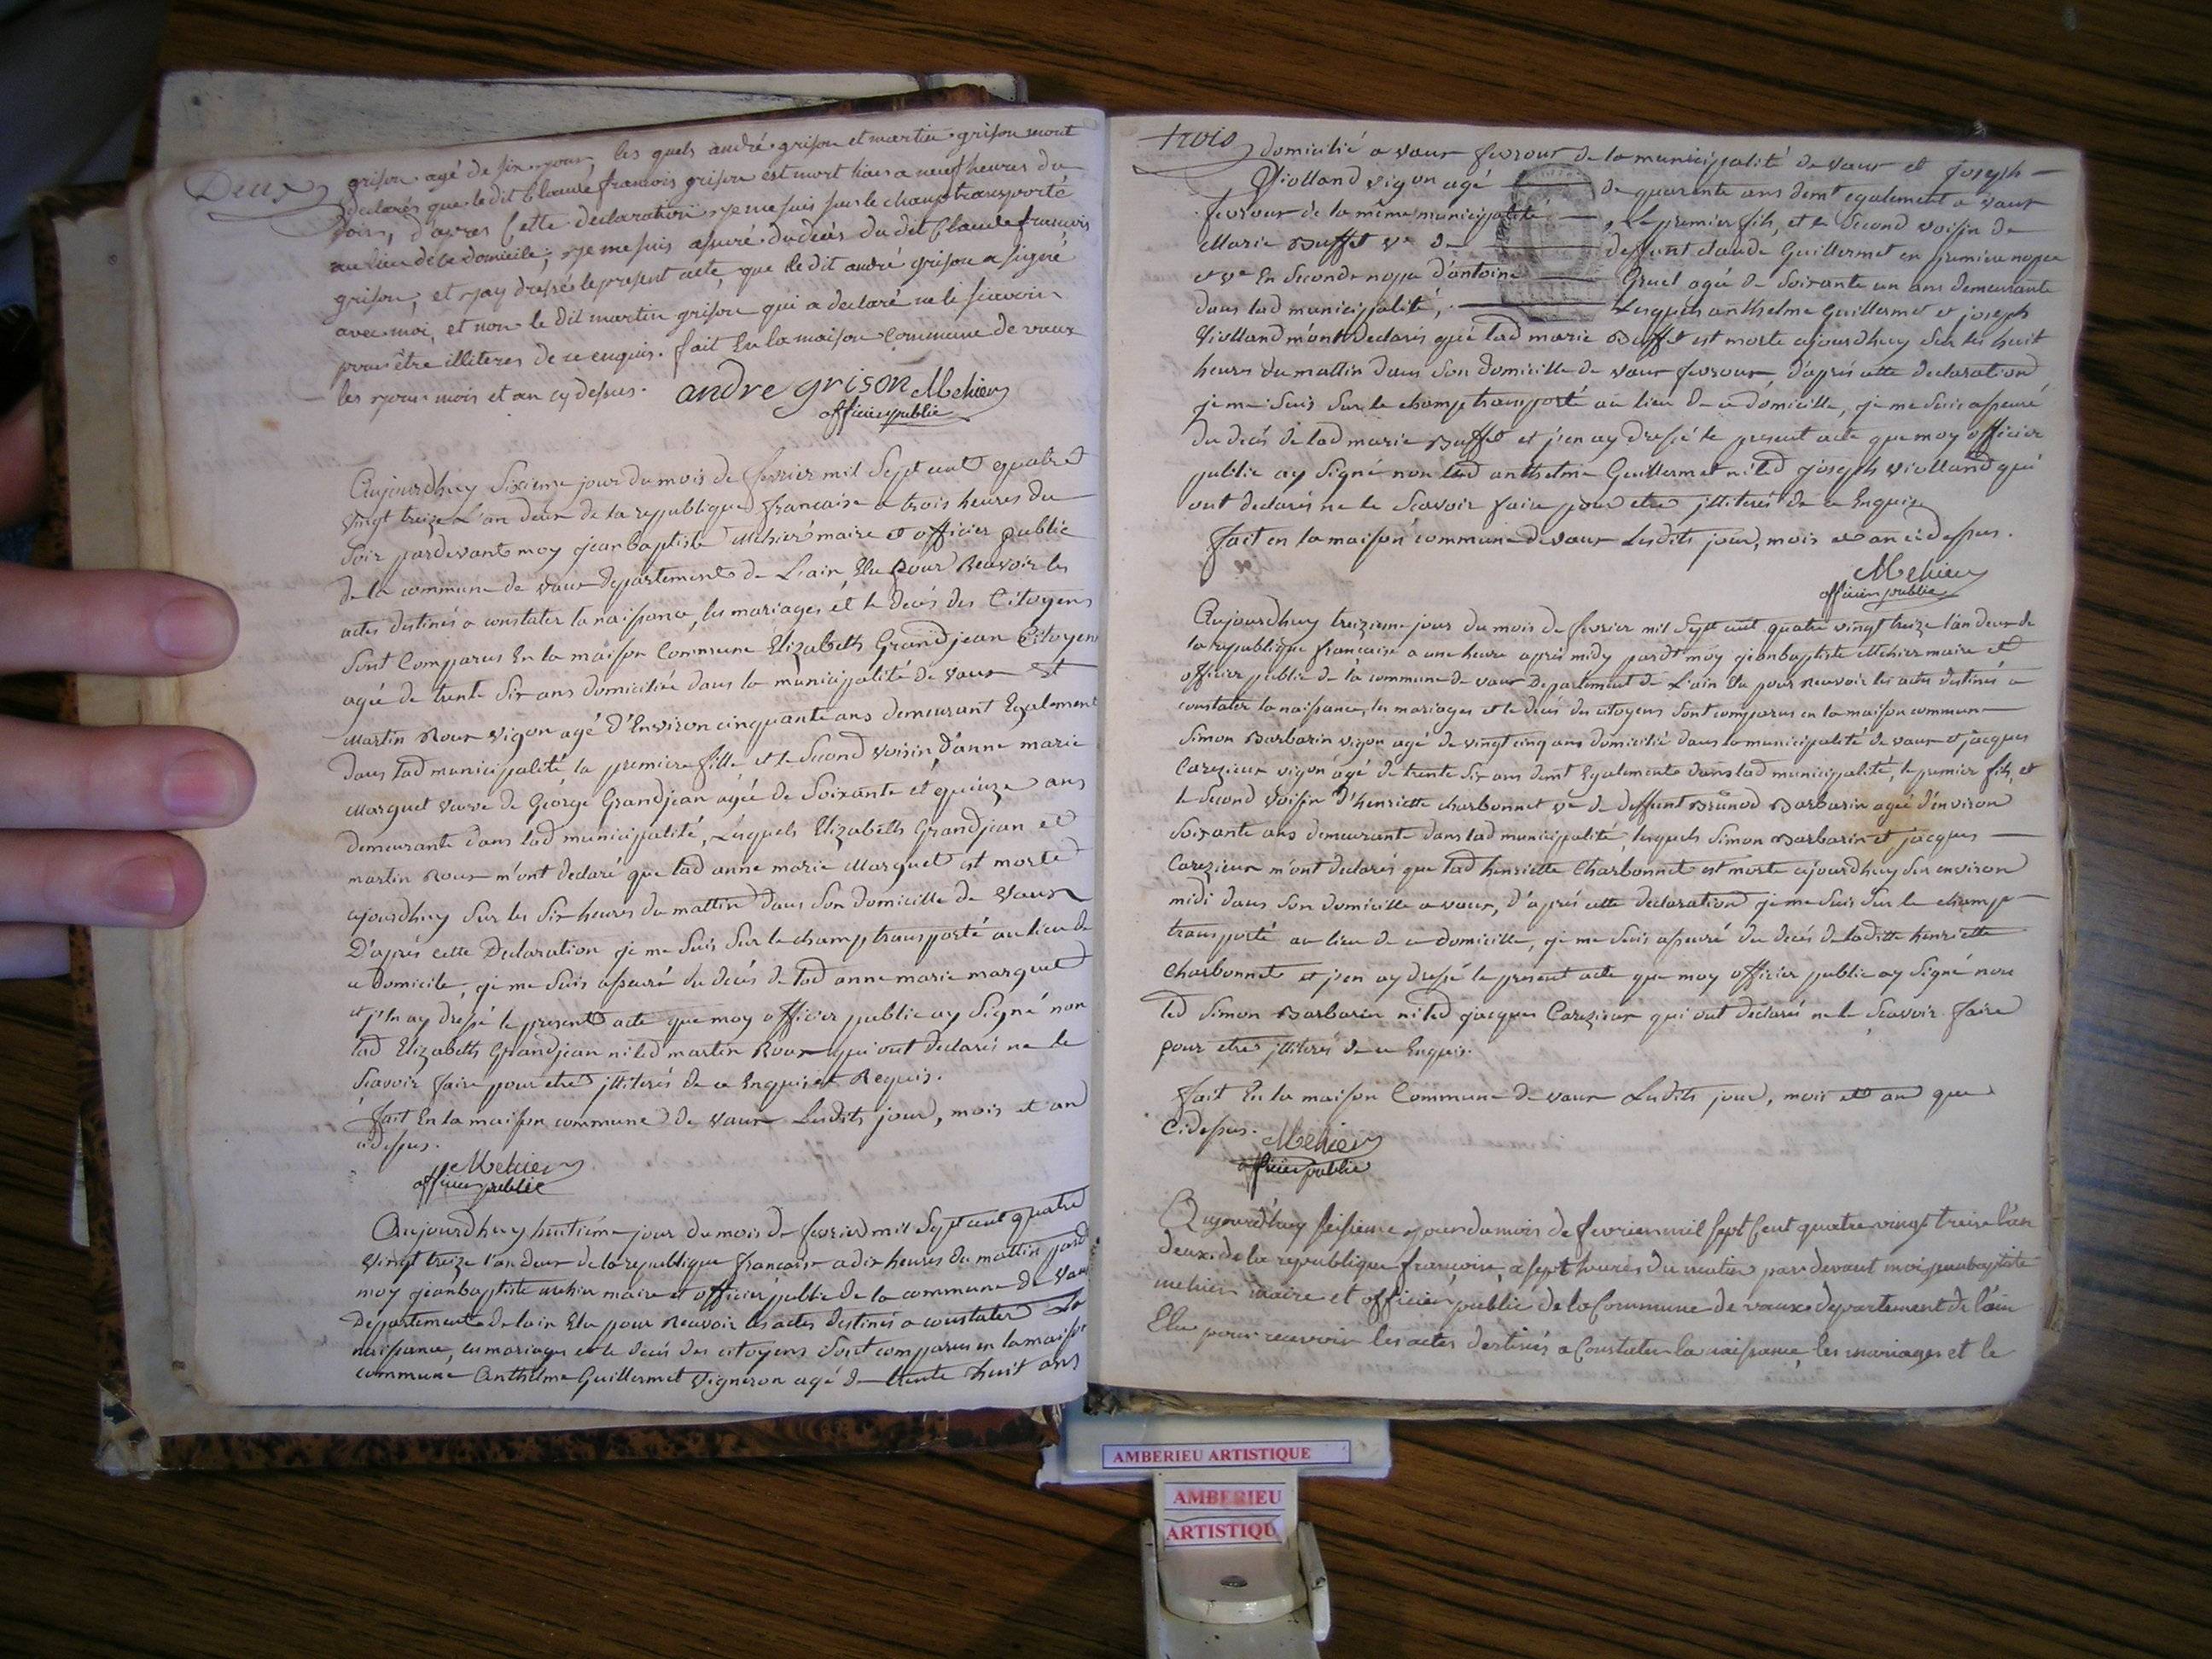 Deux
grison agé de six jours, les quels andré grison et martin grison mont
declarés que le dit Claude francois grison est mort hier a neuf heures du
soir, d'apres cette declaration je me suis sur le champ transporté
au lieu de ce domicile, je me suis assuré du decés du dit Claude francois
grison, et j'ay dressé le present acte, que le dit andré grison a signé
avec moi, et non le dit martin grison qui a declaré ne le scavoir
pour être illiteres de ce enquis. fait En la maison commune de vaux
les jour mois et an cy dessus. andre grison Mehier
officier public
Aujourdhuy Sixieme jour du mois de fevrier mil Sept cent quatre
vingt treize L'an deux de la republique francaise a trois heures du
Soir pardevant moy jean baptiste Mehier maire et officier public
de la commune de vaux departement de L'ain Elu pour Recevoir les
actes destinés a constater la naissance, les mariages et le decés des Citoyens
Sont Comparus En la maison Commune Elizabeth Grandjean Citoyenne
agée de trente Six ans domiciliée dans la municipalité de vaux Et
Martin Roux vigon agé d'Environ cinquante ans demeurant Egalement
dans lad municipalité la premiere fille et le Second voisin, d'anne marie
Marguet veuve de George Grandjean agée de Soixante et quinze ans
demeurante dans lad municipalité, Lesquels Elizabeth Grandjean et
martin Roux m'ont declaré que lad anne marie Marguet est morte
ajourdhuy Sur les Six heures du mattin dans Son domicille de Vaux
D'après cette Declaration je me Suis Sur le champ transporté au lieu de
ce domicile, je me Suis asseuré du decés de lad anne marie marguet
et j'En ay dressé le present acte que moy officier public ay Signé non
lad Elizabeth Grandjean ni led martin Roux qui ont declarés ne le
Scavoir faire pour etre illiterés de ce Enquis et Requis.
fait En la maison commune de vaux Lesdits jour, mois et an
cidessus.
Mehier
officier public
Aujourdhuy huitieme jour du mois de fevrier mil Sept cent quatre
vingt treize l'an deux de la republique francaise a dix heures du mattin pard
moy jean baptiste Mehier maire et officier public de la commune de vaux
departement de lain Elu pour Recevoir les actes destinés a constater La
naissance, les mariages et le decés des citoyens Sont comparus en la maison
commune Anthelme Guillermet Vigneron agé de trente huit ans
trois
domicilié a vaux fevroux de la municipalité de vaux et joseph
Violland vigon agé de quarente ans demt egalement a vaux
fevroux de la même municipalité, Le premier fils, et le Second voisin de
Marie Buffet ve de deffunt claude Guillermet en premiere nopce
et ve En Seconde nopce d'antoine Gruel agée de Soixante un ans demeurante
dans lad municipalité, Lesquels anthelme Guillermet et joseph
Violland m'ont declarés que lad marie Buffet est morte ajourdhuy Sur les huit
heures du mattin dans Son domicille de vaux fevroux, d'après cette declaration
je me Suis Sur le champ transporté au lieu de ce domicille, je me Suis asseuré
du decés de lad marie Buffet et j'en ay dressé le present acte que moy officier
public ay Signé non led anthelme Guillermet ni led joseph violland qui
ont declarés ne le Scavoir faire pour etre illiterés de ce Enquis
fait en la maison commune de vaux Lesdits jour, mois et an cidessus.
Mehier
officier public
Aujourdhuy treizieme jour du mois de fevrier mil Sept cent quatre vingt treize l'an deux de
la republique francaise a une heure après midy pardt moy jean baptiste Mehier maire et
officier public de la commune de vaux departement de L'ain Elu pour Recevoir les actes destinés a
constater la naissance, les mariages et le decés des citoyens Sont comparus en la maison commune
Simon Barbarin vigon agé de vingt cinq ans domicilié dans la municipalité de vaux et jacques
Carezieux vigon agé de trente Six ans demt Egalement dans lad municipalité, le premier fils, et
le Second voisin d'henriette charbonnet ve de deffunt Brunod Barbarin agée d'environ
Soixante ans demeurante dans lad municipalité, lesquels Simon Barbarin et jacques
Carezieux m'ont declarés que lad henriette Charbonnet est morte ajourdhuy Sur environ
midi dans Son domicille a vaux, d'après cette declaration je me Suis Sur le champ
transporté au lieu de ce domicille, je me Suis asseuré du decés de laditte henriette
Charbonnet et j'en ay dressé le present acte que moy officier public ay Signé non
led Simon Barbarin ni led jacques Carezieux qui ont declarés ne le Scavoir faire
pour etre illiterés de ce Enquis.
fait En la maison Commune de vaux Lesdits jour, mois et an que
Cidessus. Mehier
officier public
Aujourd'huy seisieme jour du mois de fevrier mil sept Cent quatre vingt treise l'an
deux de la republique francoise, a sept heures du matin par devant moi jean baptiste
mehier maire et officier public de la Commune de vaux departement de l'ain
Elu pour recevoir les actes destinés a Constater la naissance, les mariages et le
AMBERIEU ARTISTIQUE
AMBERIEU
ARTISTIQU